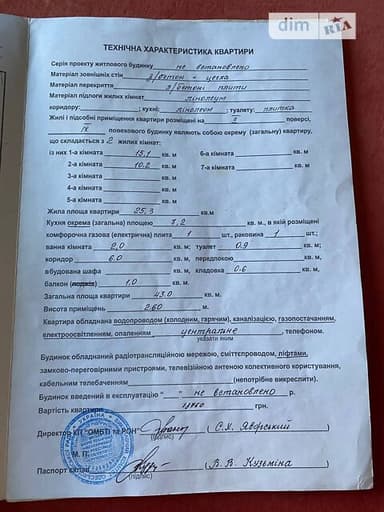 dim RIA
ТЕХНІЧНА ХАРАКТЕРИСТИКА КВАРТИРИ
Серія проекту житлового будинку не встановлено
Матеріал зовнішніх стін з/бетон - цегла
Матеріал перекриття з/бетоні плити
Матеріал підлоги жилих кімнат лінолеум
коридору: ; кухні: лінолеум ; туалету: плитка
Жилі і підсобні приміщення квартири розміщені на поверсі,
IX поверхового будинку являють собою окрему (загальну) квартиру,
що складається з 2 жилих кімнат:
із них 1-а кімната 15,1 кв. м 6-а кімната кв. м
2-а кімната 10,2 кв. м 7-а кімната кв. м
3-а кімната кв. м
4-а кімната кв. м
5-а кімната кв. м
Жила площа квартири 25,3 кв.м
Кухня окрема (загальна) площею 7,2 кв. м., в якій розміщені
комфорочна газова (електрична) плита 1 шт., раковина 1 шт.;
ванна кімната 2,0 кв. м; туалет 0.9 кв. м;
коридор 6.0 кв. м, передпокою кв. м,
вбудована шафа кв. м, кладовка 0.6 кв. м,
балкон (лоджія) 1,0 кв. м.
Загальна площа квартири 43.0 кв. м.
Висота приміщень 2.60 м.
Квартира обладнана водопроводом (холодним, гарячим), каналізацією, газопостачанням,
електроосвітленням, опаленням центральне , телефоном.
указати яким
Будинок обладнаний радіотрансляційною мережею, сміттєпроводом, ліфтами,
замково-переговорними пристроями, телевізійною антеною колективного користування,
кабельним телебаченням (непотрібне викреслити).
Будинок введений в експлуатацію - не встановлено р.
Вартість квартири грн.
Директор КП "ОМБТІ та РОН" ( С.Я. Яворський )
(підпис)
М. П.
Паспорт склав ( В. В. Кузьміна )
(підпис)